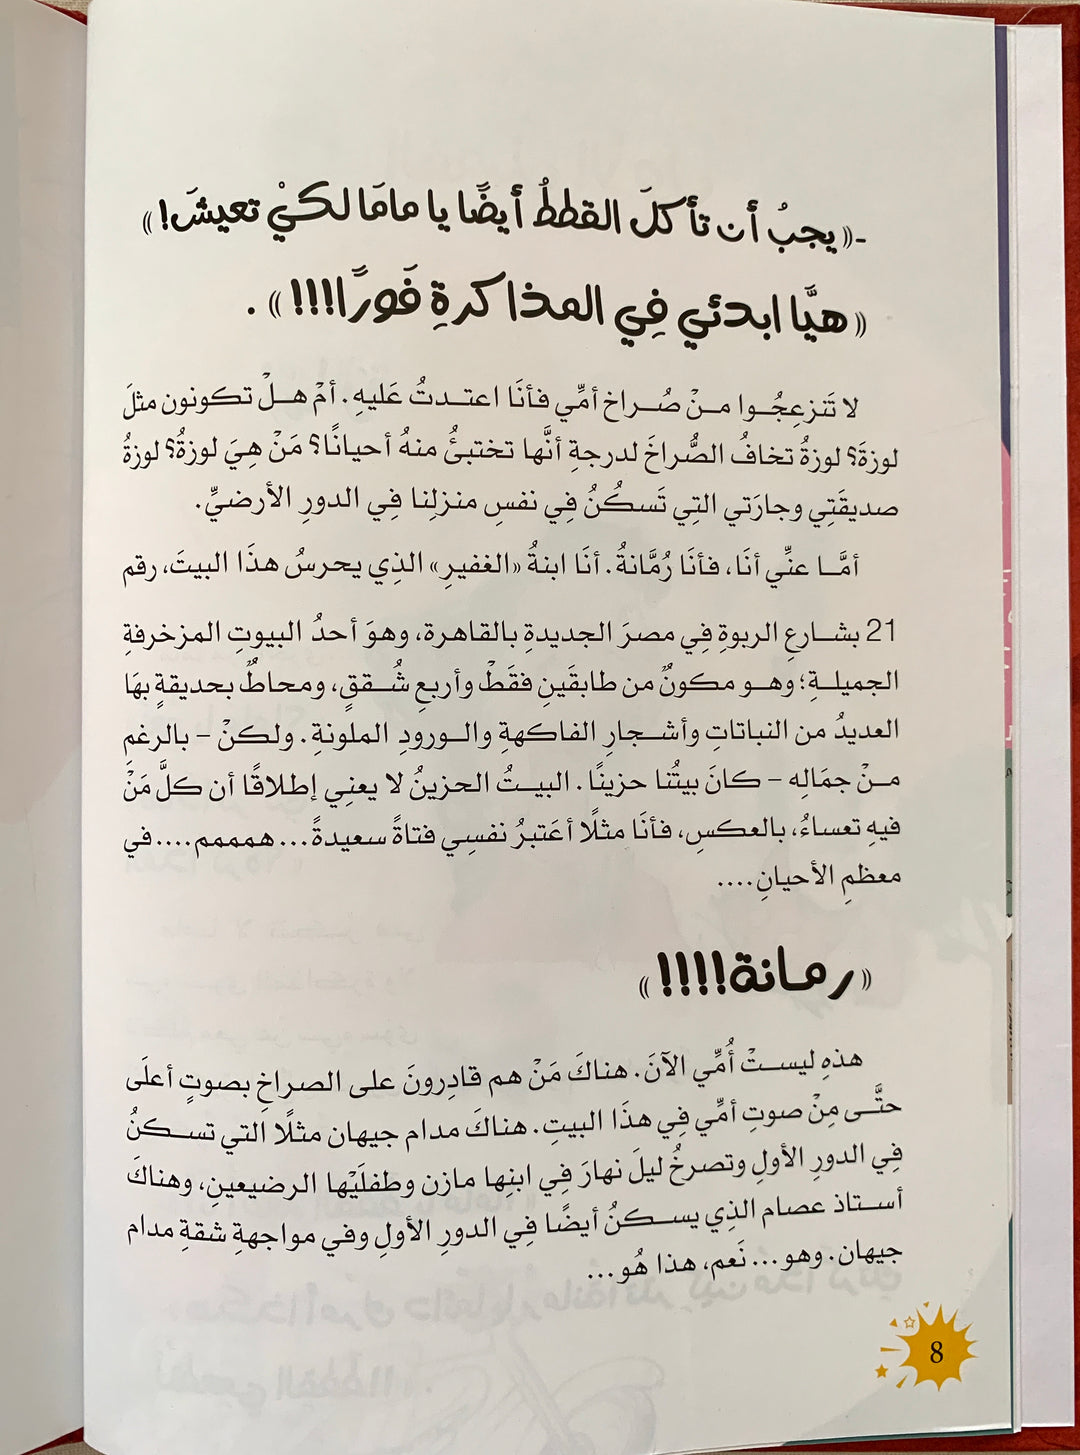 -«يجبُ أن تأكلَ القططُ أيضًا يا مامَا لكيْ تعيشَ!»
«هيَّا ابدئي فِي المذاكرةِ فَورًا!!!!» .
لا تَنزعِجُــوا مــنْ صُــراخ أمِّي فأنَا اعتــدتُ عَليهِ. أمْ هــلْ تكونون مثلَ
لوزةَ؟ لوزةُ تخافُ الصُّراخَ لدرجةِ أنَّها تختبئُ منهُ أحيانًا؟ مَنْ هِيَ لوزةُ؟ لوزةُ
صديقَتِي وجارَتي التِي تَسكُنُ فِي نفسِ منزلِنا فِي الدورِ الأرضيِّ.
أمَّــا عنِّي أنَا، فأنَا رُمَّانةُ. أنَا ابنةُ «الغفيرِ» الذِي يحرسُ هذَا البيتَ، رقم
21 بشــارعِ الربوةِ فِي مصرَ الجديدةِ بالقاهرة، وهوَ أحدُ البيوتِ المزخرفةِ
الجميلــةِ؛ وهــو مكونٌ من طابقَينِ فقَطْ وأربعِ شُــققٍ، ومحاطٌ بحديقةٍ بهَا
العديدُ من النباتاتِ وأشــجارِ الفاكهةِ والــورودِ الملونةِ. ولكنْ – بالرغمِ
مــنْ جمَالِه – كانَ بيتُنا حزينًا. البيــتُ الحزينُ لا يعنِي إطلاقًا أن كلَّ مَنْ
فيهِ تعساءُ، بالعكسِ، فأنَا مثلًا أعَتبرُ نفسِي فتاةً سعيدةً... همممم.... في
معظمِ الأحيانِ....
«رمانة!!!!»
هذهِ ليســتْ أُمِّي الآنَ. هناكَ مَنْ هم قادِرونَ على الصراخِ بصوتٍ أعلَى
حتَّــى مِنْ صوتِ أمِّي فِي هذَا البيتِ. هناكَ مدام جيهان مثلًا التي تســكنُ
فِي الدورِ الأولِ وتصرخُ ليلَ نهارَ فِي ابنِها مازن وطفلَيْها الرضيعينِ، وهناكَ
أســتاذ عصام الذِي يســكنُ أيضًا فِي الدورِ الأولِ وفي مواجهةِ شقةِ مدام
جيهان. وهو... نَعم، هذا هُو...
8